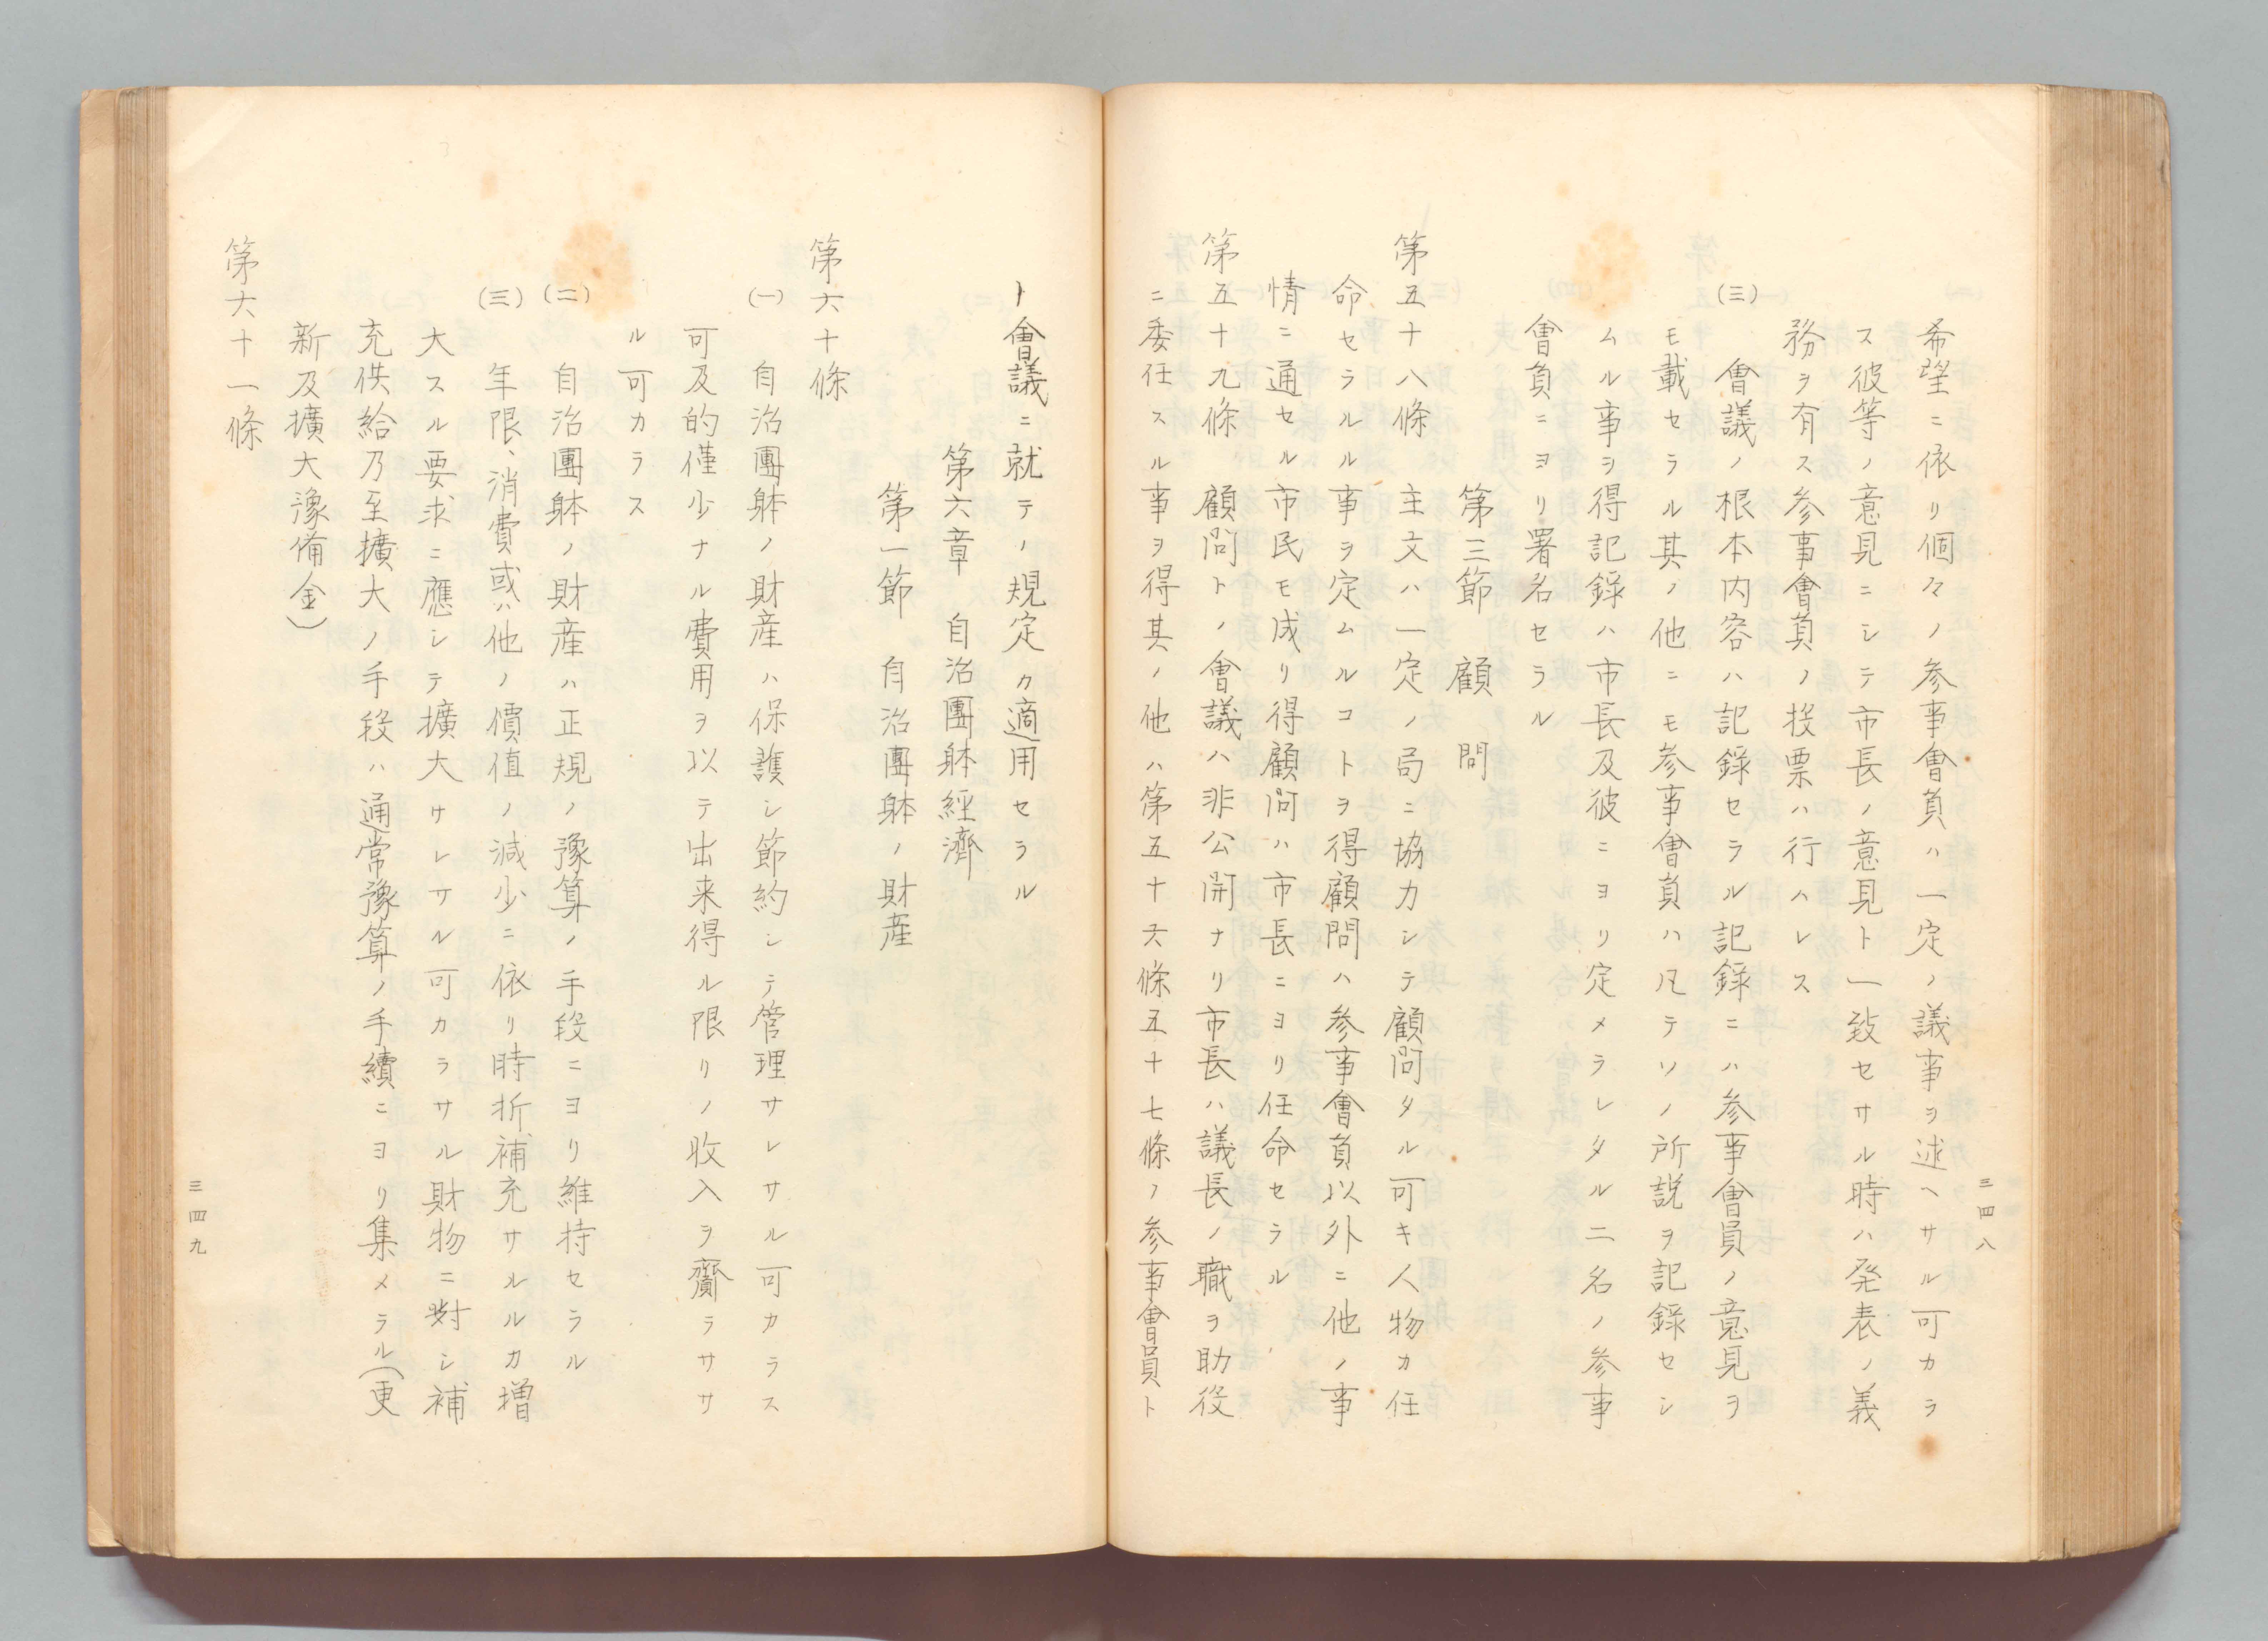 三四八
希望ニ依リ個々ノ参事會員ハ一定ノ議事ヲ述ヘサル可カラ
ス彼等ノ意見ニシテ市長ノ意見ト一致セサル時ハ発表ノ義
務ヲ有ス参事會員ノ投票ハ行ハレス
(三) 會議ノ根本内容ハ記録セラル記録ニハ参事會員ノ意見ヲ
モ載セラル其ノ他ニモ参事會員ハ凡テソノ所説ヲ記録セシ
ムル事ヲ得記録ハ市長及彼ニヨリ定メラレタル二名ノ参事
會員ニヨリ署名セラル
第三節 顧問
第五十八條 主文ハ一定ノ局ニ協力シテ顧問タル可キ人物カ任
命セラルル事ヲ定ムルコトヲ得顧問ハ参事會員以外ニ他ノ事
情ニ通セル市民モ成リ得顧問ハ市長ニヨリ任命セラル
第五十九條 顧問トノ會議ハ非公開ナリ市長ハ議長ノ職ヲ助役
ニ委任スル事ヲ得其ノ他ハ第五十六條五十七條ノ参事會員ト
ト會議ニ就テノ規定カ適用セラル
第六章 自治團躰經濟
第一節 自治團躰ノ財産
第六十條
(一) 自治團躰ノ財産ハ保護シ節約シテ管理サレサル可カラス
可及的僅少ナル費用ヲ以テ出来得ル限リノ收入ヲ齎ラササ
ル可カラス
(二) 自治團躰ノ財産ハ正規ノ豫算ノ手段ニヨリ維持セラル
(三) 年限、消費或ハ他ノ價値ノ減少ニ依リ時折補充サルルカ増
大スル要求ニ應シテ擴大サレサル可カラサル財物ニ對シ補
充供給乃至擴大ノ手段ハ通常豫算ノ手續ニヨリ集メラル(更
新及擴大豫備金)
第六十一條
三四九